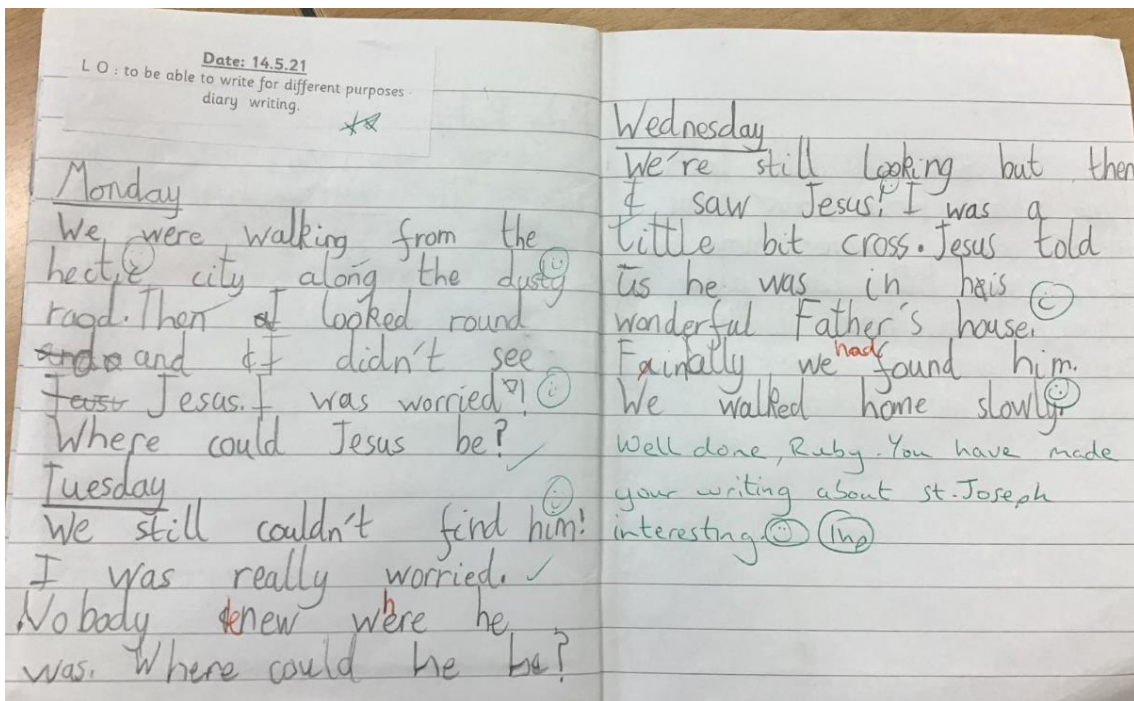 Date: 14.5.21
L O : to be able to write for different purposes -
diary writing.
Monday
We were walking from the
hectic city along the dusty
road. Then I looked round
and I didn't see
Jesus. I was worried!
Where could Jesus be?
Tuesday
We still couldn't find him!
I was really worried.
Nobody knew where he
was. Where could he be?
Wednesday
We're still looking but then
I saw Jesus! I was a
little bit cross. Jesus told
us he was in his
wonderful Father's house.
Fainally we had found him.
We walked home slowly.
Well done, Ruby. You have made
your writing about St. Joseph
interesting.